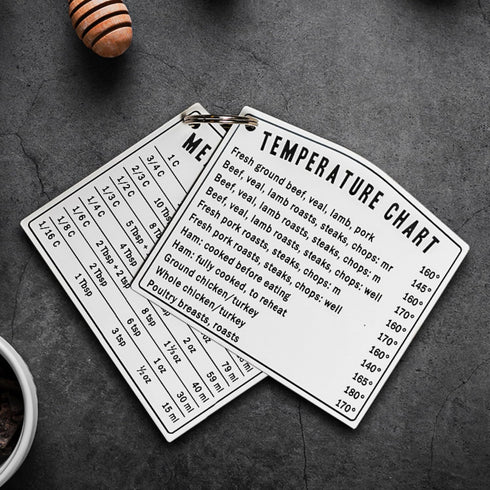 ME
1 C
3/4 C
2/3 C 10 Tbsp
1/2 C 8 Tbsp
1/3 C 5 Tbsp 79 ml
1/4 C 4 Tbsp 2 oz 59 ml
1/6 C 2 Tbsp + 2 8 tsp 1⅓ oz 40 ml
1/8 C 2 Tbsp 6 tsp 1 oz 30 ml
1/16 C 1 Tbsp 3 tsp ½ oz 15 ml
TEMPERATURE CHART
Fresh ground beef, veal, lamb, pork 160°
Beef, veal, lamb roasts, steaks, chops: mr 145°
Beef, veal, lamb roasts, steaks, chops: m 160°
Beef, veal, lamb roasts, steaks, chops: well 170°
Fresh pork roasts, steaks, chops: m 160°
Fresh pork roasts, steaks, chops: well 170°
Ham: cooked before eating 160°
Ham: fully cooked, to reheat 140°
Ground chicken/turkey 165°
Whole chicken/turkey 180°
Poultry breasts, roasts 170°